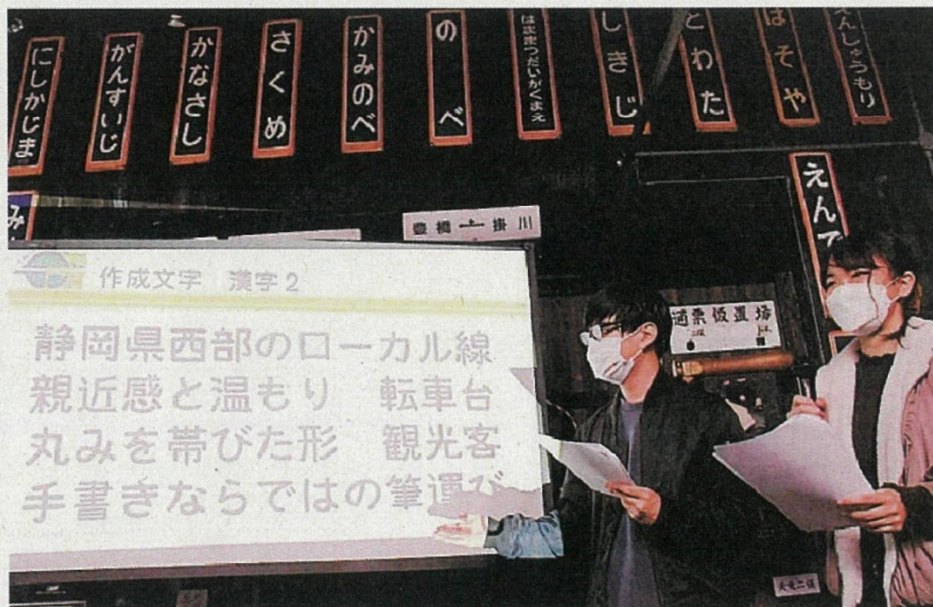 にしかじま
がんすいじ
かなさし
さくめ
かみのべ
のべ
はままつだいがくまえ
しきじ
とわた
はそや
えんしゅうもり
えんで
み
豊橋 掛川
作成文字 漢字2
静岡県西部のローカル線
親近感と温もり 転車台
丸みを帯びた形 観光客
手書きならではの筆運び
通票仮置場